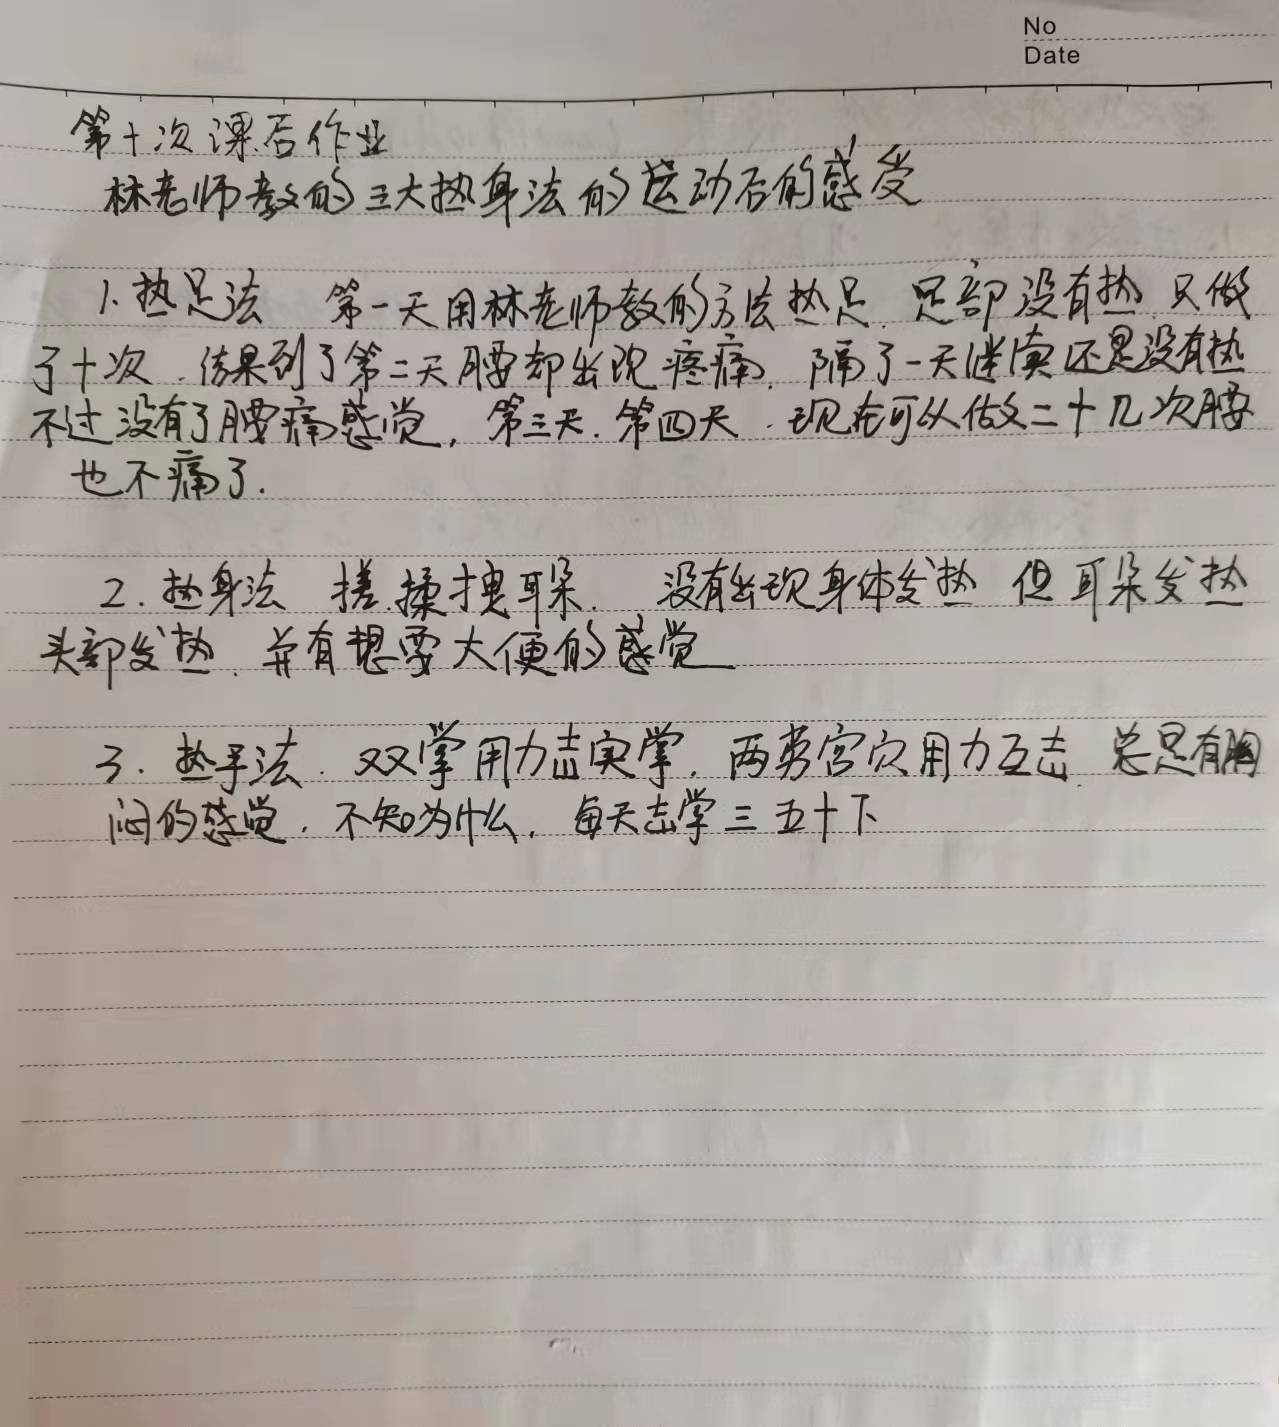 No
Date
第十次课后作业
林老师教的三大热身法的运动后的感受
1.热足法 第一天用林老师教的方法热足.足部没有热,只做
了十次.结果到了第二天腰却出现疼痛.隔了一天继续还是没有热
不过没有了腰痛感觉,第三天.第四天.现在可以做二十几次腰
也不痛了.
2.热身法 搓.揉拽耳朵. 没有出现身体发热 但耳朵发热
头部发热.并有想要大便的感觉
3.热手法.双掌用力击实掌.两劳宫穴用力互击.总是有胸
闷的感觉.不知为什么,每天击掌三五十下